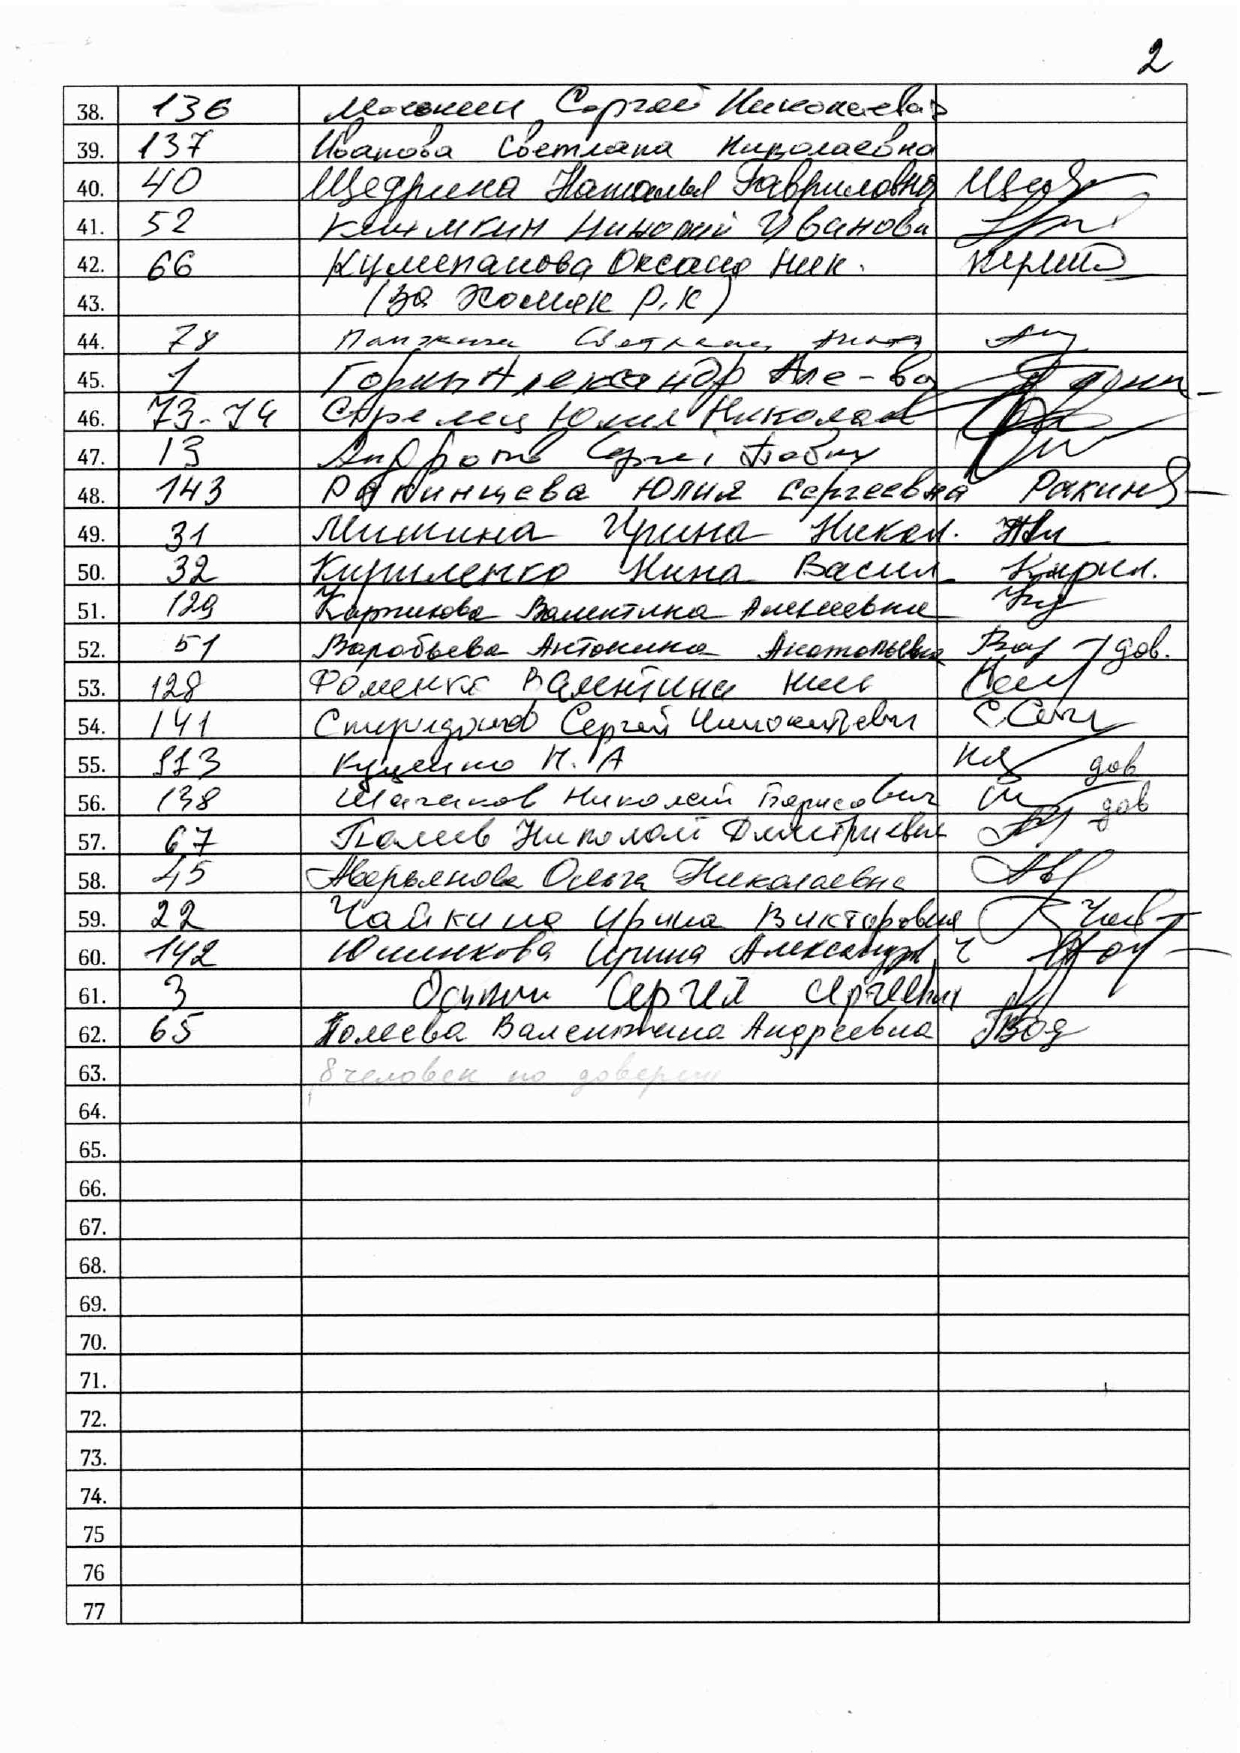 2
38. 136 Сергей Николаевич
39. 137 Иванова Светлана Николаевна
40. 40 Щедрина Наталья Гавриловна Щед
41. 52 Климкин Николай Иванови
42. 66 Оксана Ник.
43. (за Хомяк Р.К)
44. 78 Светлана
45. 1 Горин Александр Але-ва Горин
46. 73-74 Стрелец Юлия Николаев
47. 13 Сергей
48. 143 Ракинцева Юлия Сергеевна Ракин
49. 31 Мишина Ирина Никол.
50. 32 Кириленко Нина Васил Кирил.
51. 129 Карпикова Валентина Алексеевна
52. 51 Воробьева Антонина Анатольевна дов.
53. 128 Фоменко Валентина Ник
54. 141 Спиридонов Сергей
55. 113 Куценко Н. А дов
56. 138 Николай Борисович дов
57. 67 Полеев Николай Дмитриевич
58. 45 Аверьянова Ольга Николаевна Ав
59. 22 Чайкина Ирина Викторовна
60. 142 Юшинкова Ирина Александр
61. 3 Осипов Сергей Сергеевич
62. 65 Полеева Валентина Андреевна
63. 8 человек по доверен
64.
65.
66.
67.
68.
69.
70.
71.
72.
73.
74.
75
76
77